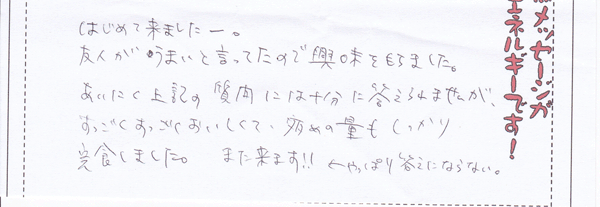 はじめて来ましたー。
友人がうまいと言ってたので興味をもちました。
あいにく上記の質肉には十分に答えられませんが、
すっごくすっごくおいしくて、多めの量もしっかり
完食しました。 また来ます!! ←やっぱり答えにならない。
メッセージが
エネルギーです!